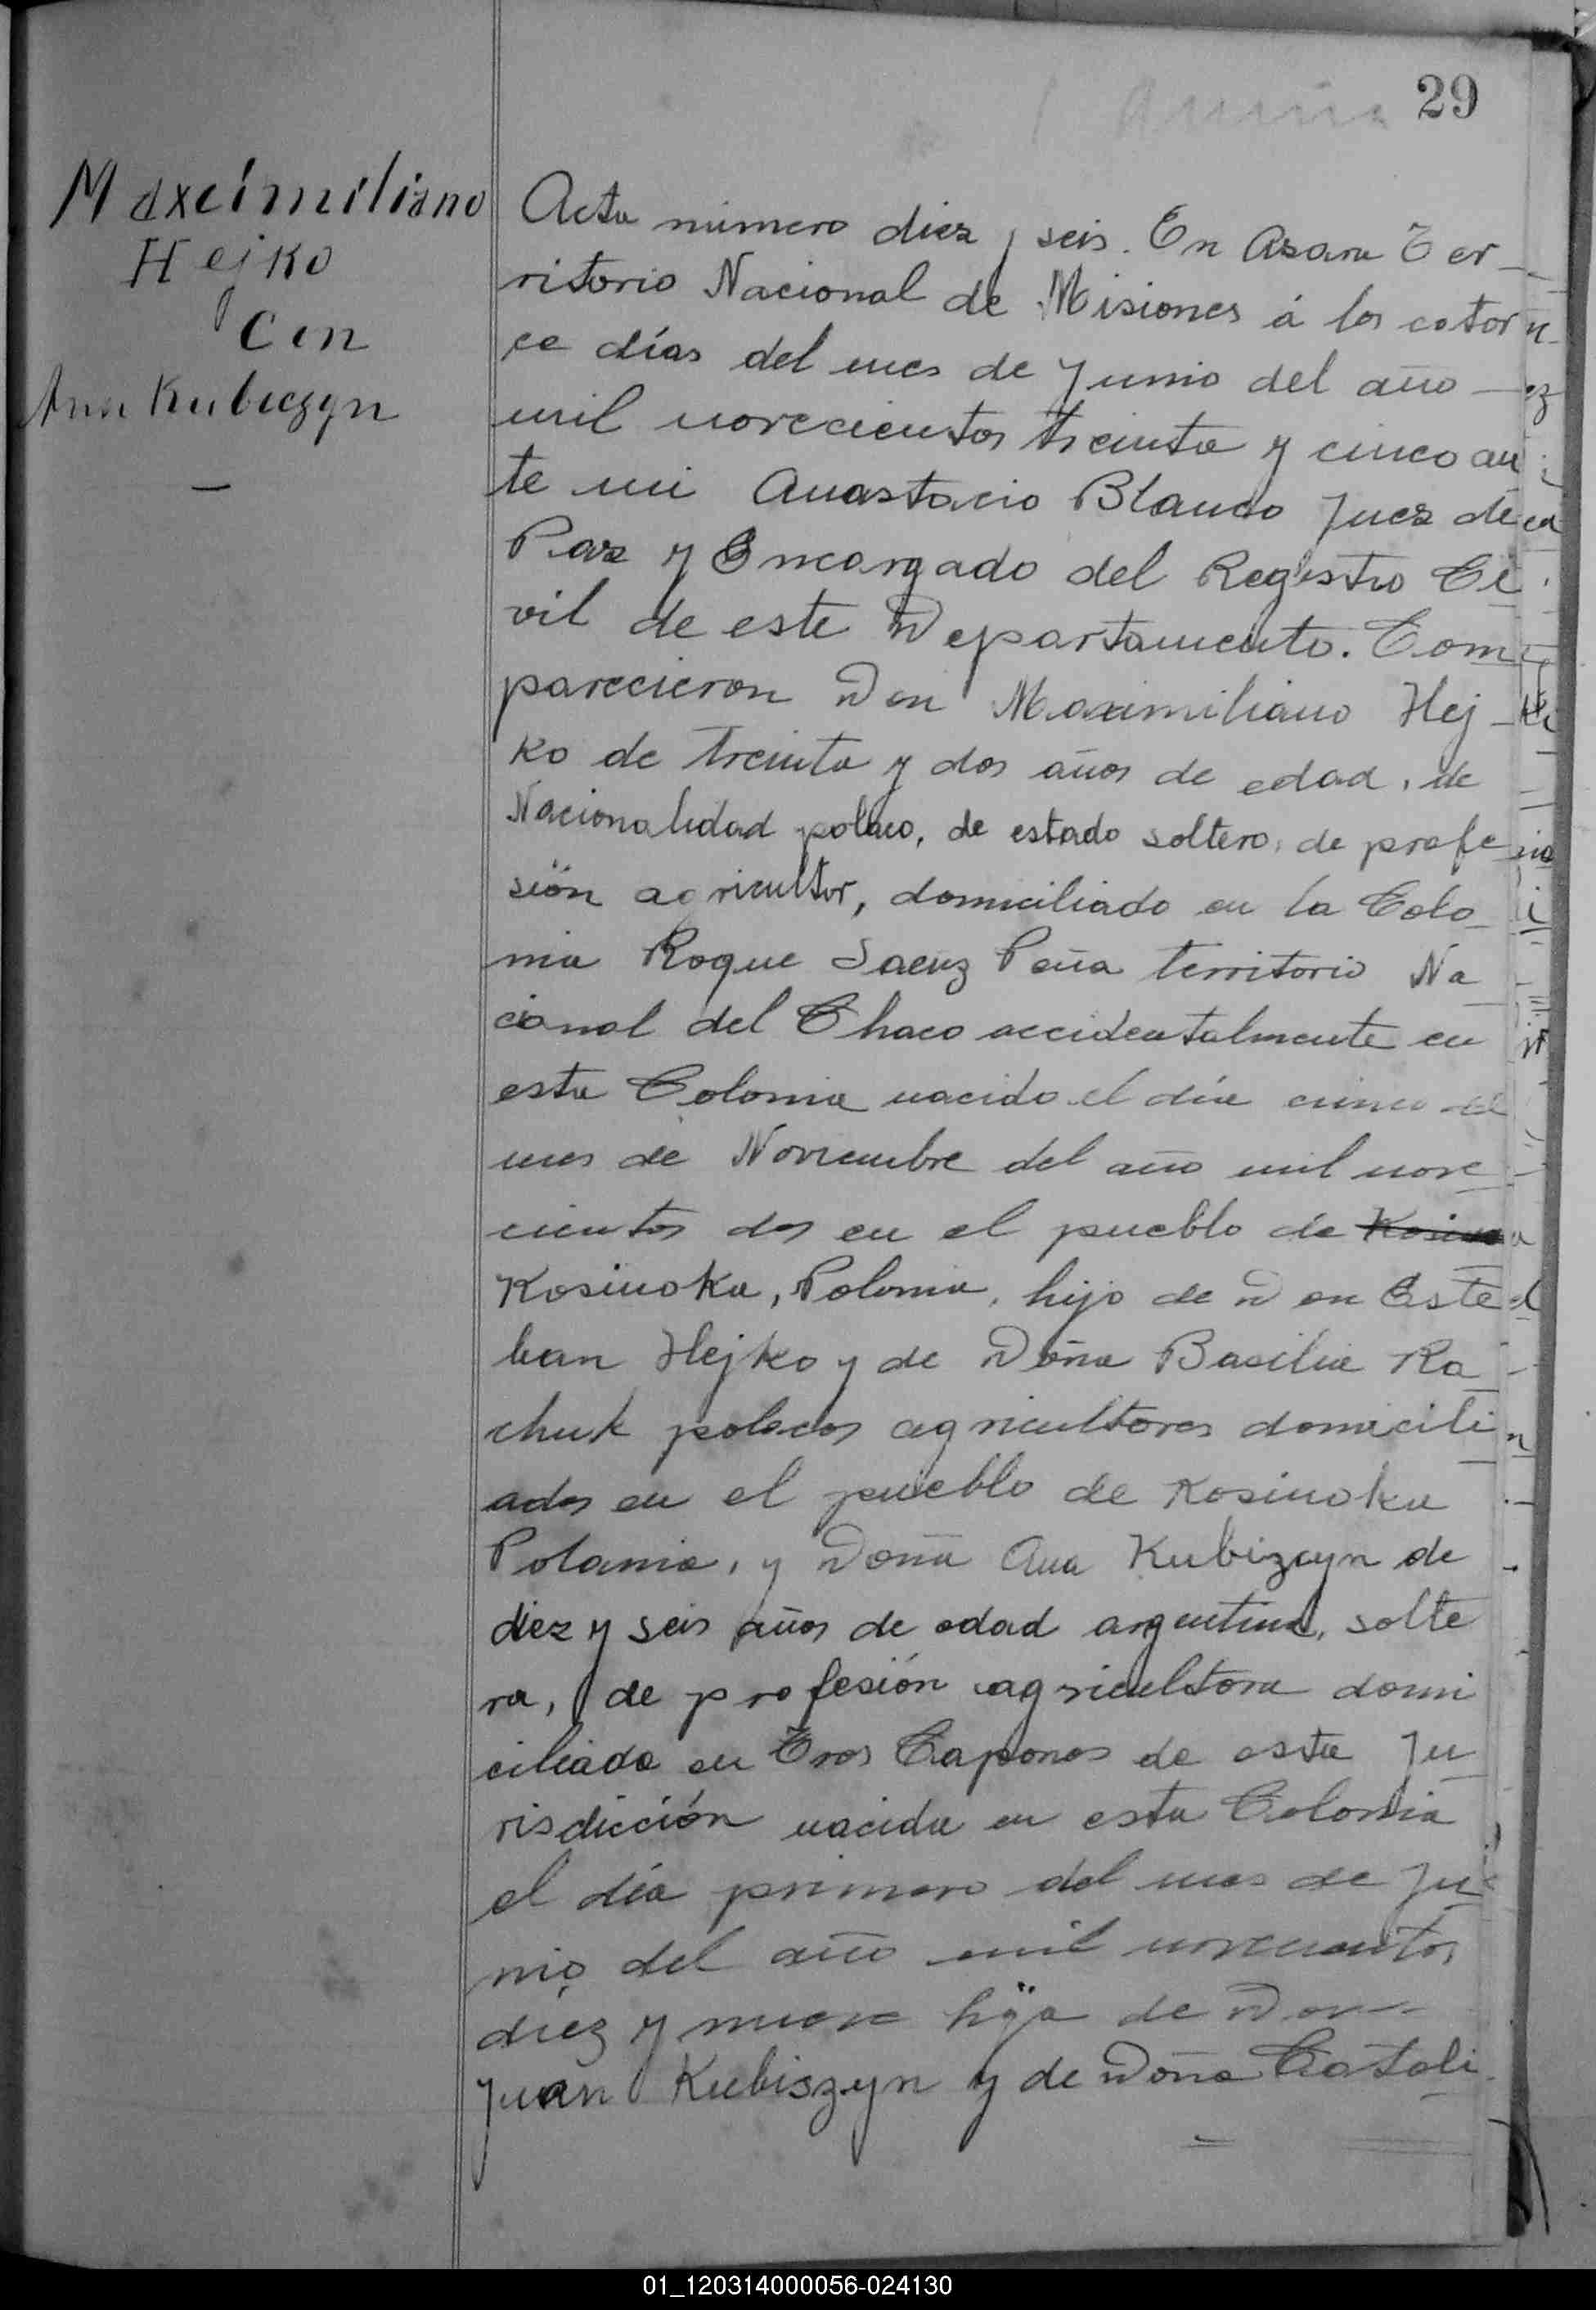 29
Maxcimiliano
Hejko
Con
Ana Kubiczyn
Acta número diez y seis. En Azara Ter_
ritorio Nacional de Misiones á los cator
ce días del mes de Junio del año —
mil novecientos treinta y cinco an
te mi Anastacio Blanco Juez de
Paz y Encargado del Registro Ci
vil de este Departamento. Com
parecieron Don Maximiliano Hej_
ko de treinta y dos años de edad, de
Nacionalidad polaco, de estado soltero, de profe_
sión agricultor, domiciliado en la Colo_
nia Roque Saenz Peña territorio Na_
cional del Chaco accidentalmente en
esta Colonia nacido el día cinco del
mes de Noviembre del año mil nove_
cientos dos en el pueblo de
Kosinoka, Polonia, hijo de Don Este
ban Hejko y de Doña Basilia Ra_
chuk polacos agricultores domicili_
ados en el pueblo de Kosinoka
Polania, y Doña Ana Kubizcyn de
diez y seis años de edad argentina, solte
ra, de profesión agricultora domi
ciliada en Tres Capones de esta Ju_
risdicción nacida en esta Colonia
el día primero del mes de Ju_
nio del año mil novecientos
diez y nueve hija de Don —
Juan Kubiszyn y de Doña Catali_
01_120314000056-024130